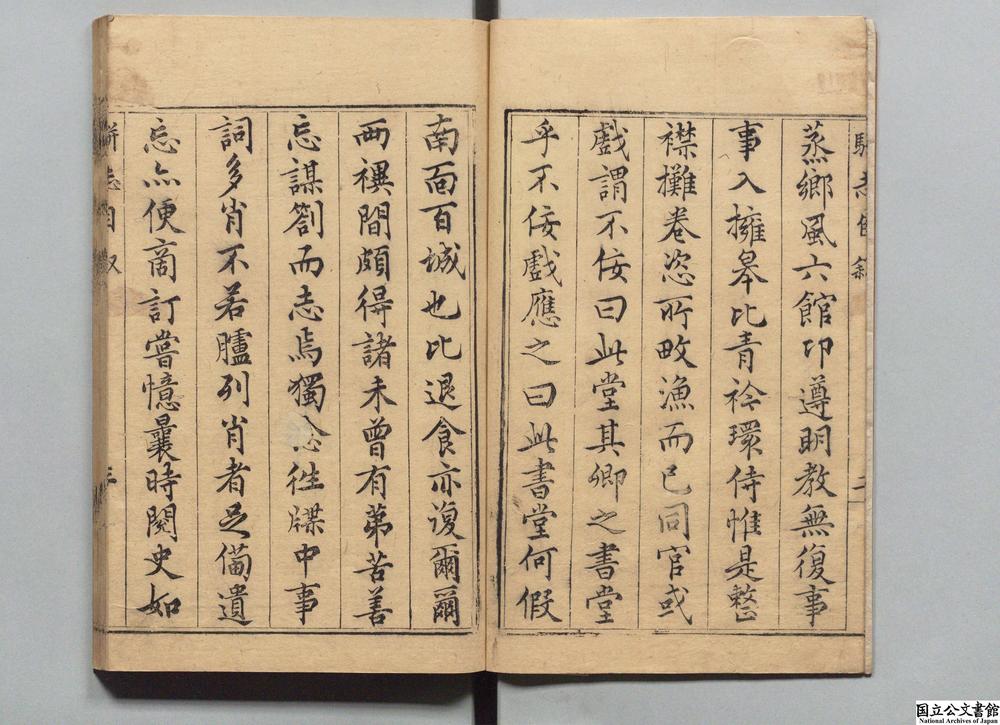 蒸鄉風六館卬遵明教無復事
事入擁皋比青衿環侍惟是整
襟攤卷恣所畋漁而已同官或
戲謂不佞曰此堂其卿之書堂
乎不佞戲應之曰此書堂何假
南面百城也比退食亦復爾爾
兩禩間頗得諸未曾有苐苦善
忘謀劄而志焉獨念徃牒中事
詞多肖不若臚列肖者足備遺
忘亦便商訂嘗憶曩時閱史如
駢志自敘
国立公文書館
National Archives of Japan